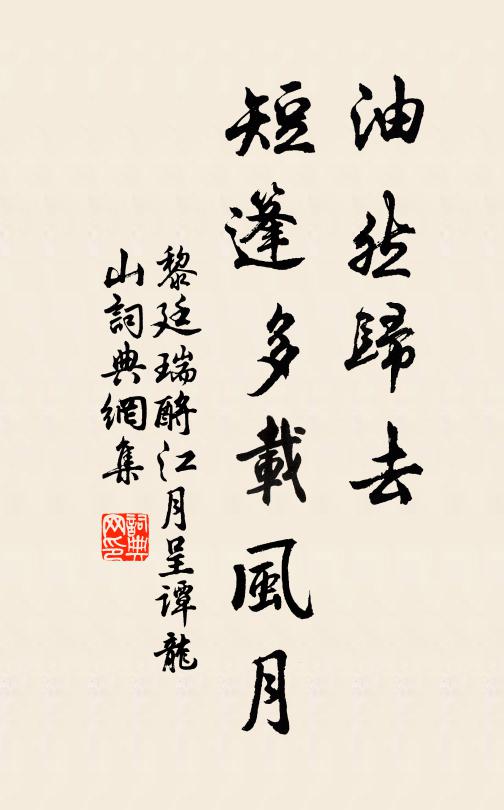 油然歸去
短篷多載風月
黎廷瑞酹江月呈譚龍
山詞典網集
詞典网印